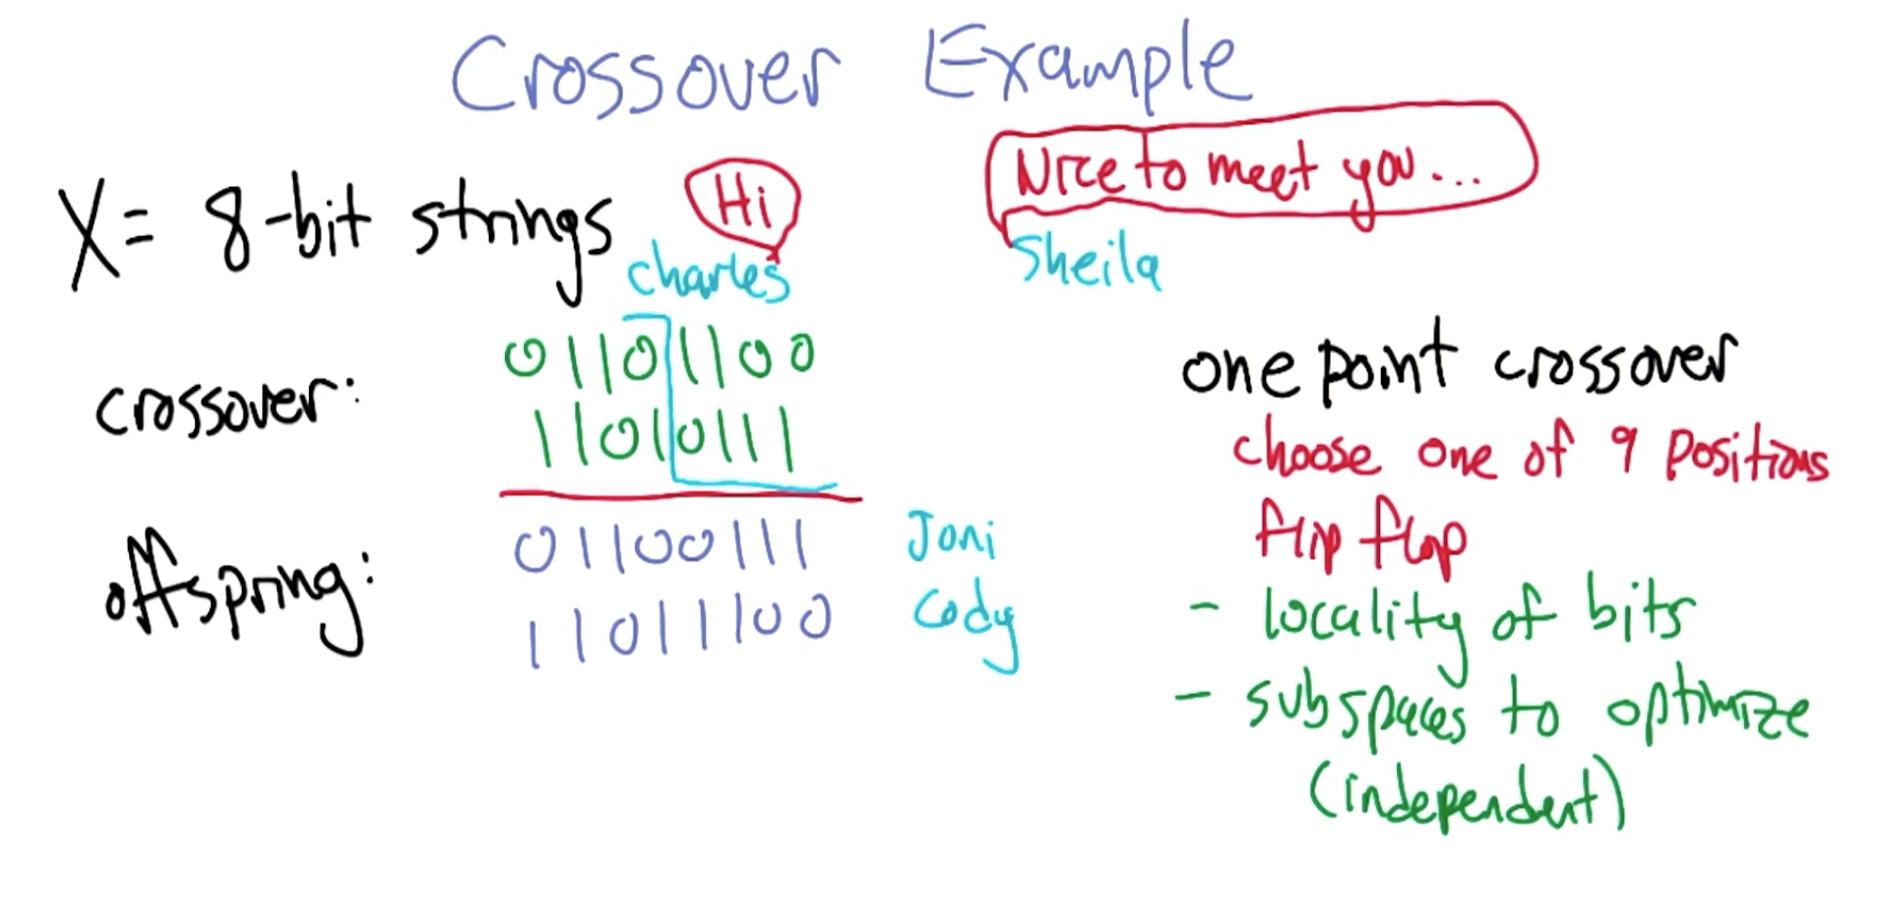 Crossover Example
X = 8-bit strings
Hi
Nice to meet you...
charles
Sheila
crossover:
01101100
11010111
offspring:
01100111 Joni
11011100 Cody
one point crossover
choose one of 9 positions
flip flop
- locality of bits
- subspaces to optimize
(independent)